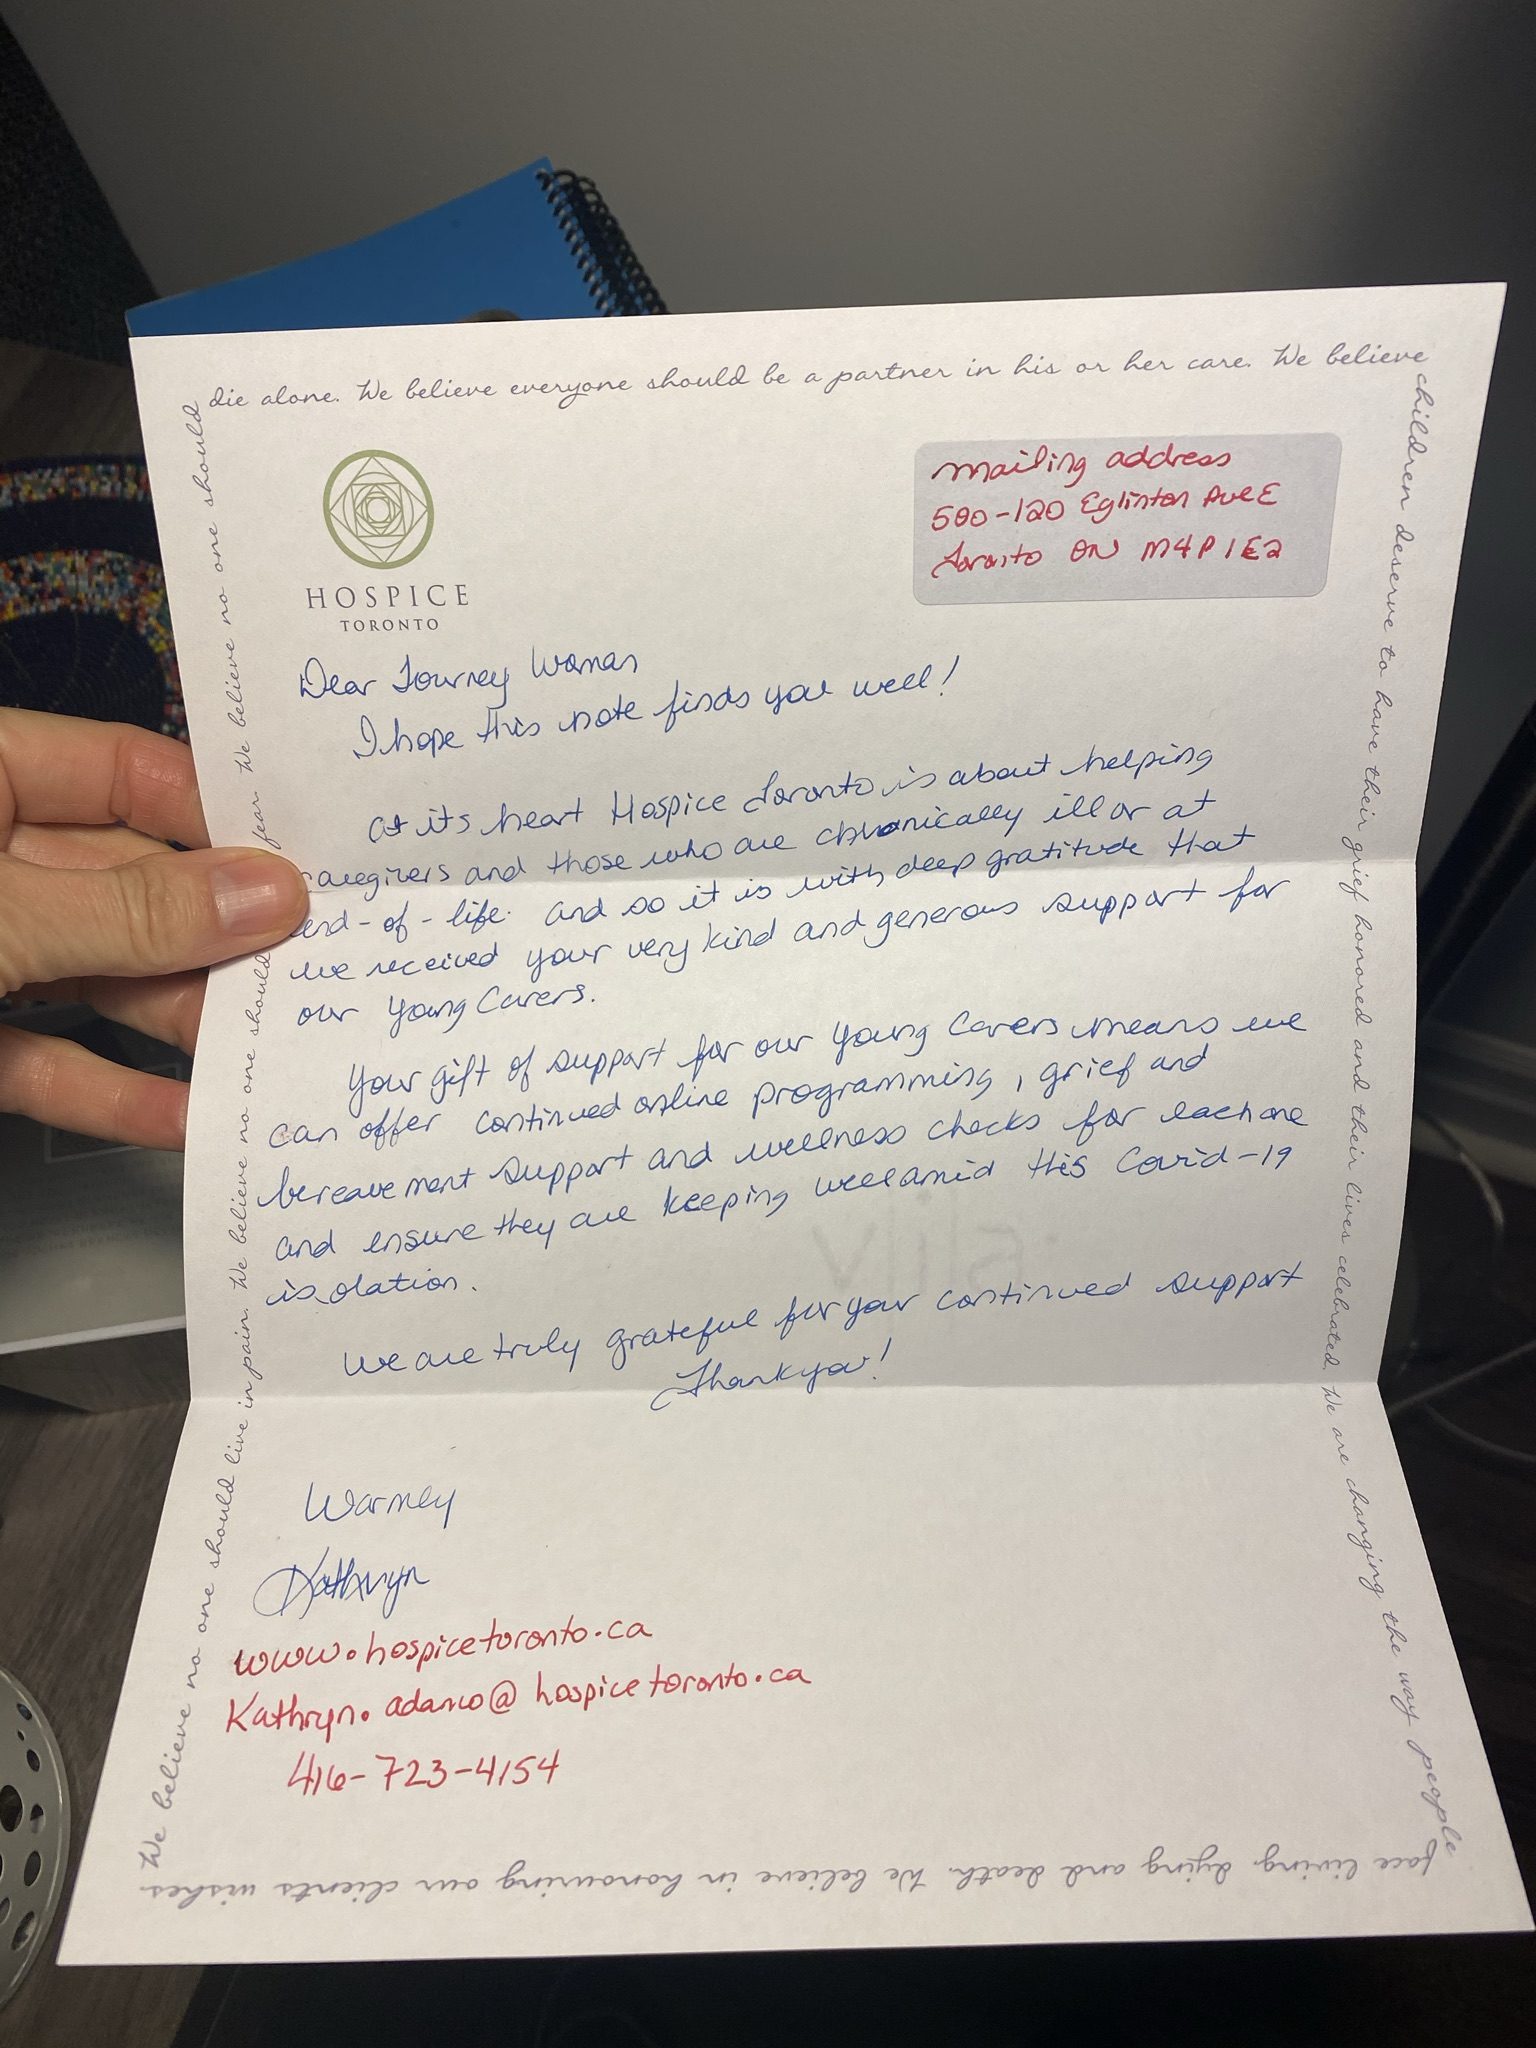 die alone. We believe everyone should be a partner in his or her care. We believe
children deserve to have their grief honored and their lives celebrated. We are changing the way people
face living, dying and death. We believe in honouring our clients wishes.
We believe no one should live in pain. We believe no one should fear. We believe no one should
HOSPICE
TORONTO
mailing address
500-120 Eglinton Ave E
Toronto ON M4P 1E2
Dear Journey Woman
I hope this note finds you well!
At its heart Hospice Toronto is about helping
caregivers and those who are chronically ill or at
end-of-life. And so it is with deep gratitude that
we received your very kind and generous support for
our Young Carers.
Your gift of support for our Young Carers means we
can offer continued online programming, grief and
bereavement support and wellness checks for each one
and ensure they are keeping well amid this Covid-19
isolation.
We are truly grateful for your continued support
Thank you!
Warmly
Kathryn
www.hospicetoronto.ca
Kathryn.@hospicetoronto.ca
416-723-4154